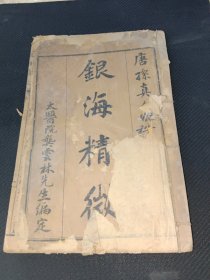 唐孫真人秘授
銀海精微
太醫院龔雲林先生編定